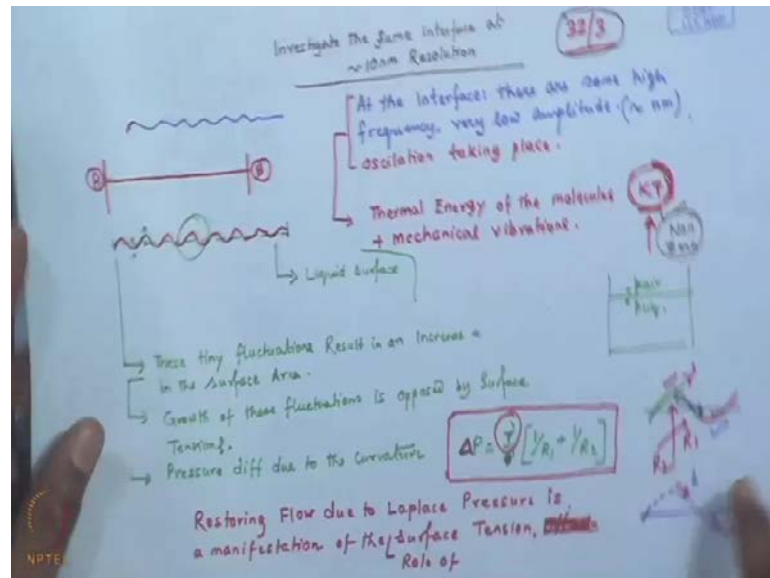 Investigate the same interface at
~10nm Resolution
32/3
At the Interface: There are some high
frequency, very low amplitude (~ nm)
oscilation taking place.
Thermal Energy of the molecules
+ mechanical vibrations.
KT
Liquid Surface
These tiny fluctuations Result in an Increase
in the surface Area.
Growth of these fluctuations is opposed by Surface
Tension.
Pressure diff due to the curvature
ΔP = γ [1/R1 + 1/R2]
R1
R2
Restoring Flow due to Laplace Pressure is
a manifestation of the Surface Tension,
Role of
NPTEL